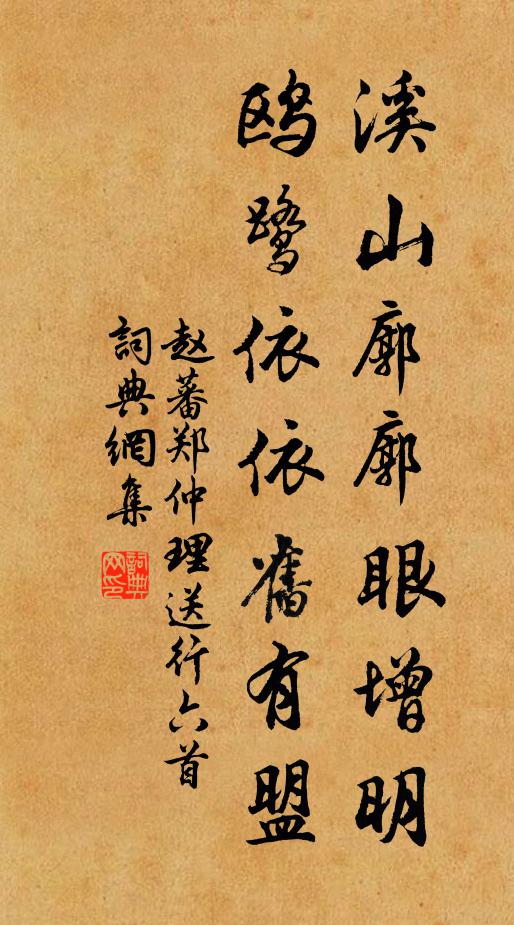 溪山廓廓眼增明
鸥鹭依依舊有盟
赵蕃郑仲理送行六首
詞典網集
詞典网印